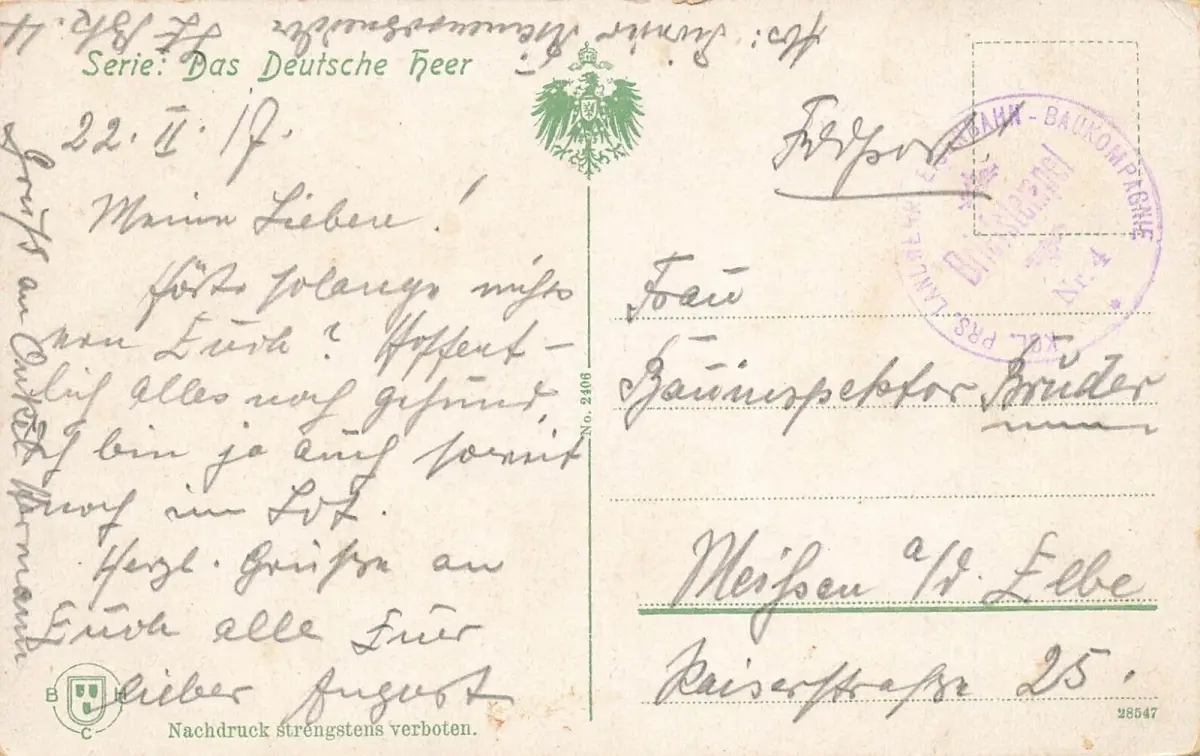 Serie: Das Deutsche Heer
22. II. 17.
Meine Lieben!
Hörte solange nichts
von Euch? Hoffent-
lich alles noch gesund,
ich bin ja auch soweit
noch im Lot.
Herzl. Grüße an
Euch alle Euer
lieber August
Gruß an Onkel Hermann
Abs:
4
Feldpost
KGL. PRS. EISENBAHN-BAUKOMPAGNIE
Nr. 4
Briefstempel
Frau
Bauinspektor Bruder
Meißen a/d. Elbe
Kaiserstraße 25.
No. 2406
B H
C
Nachdruck strengstens verboten.
28547